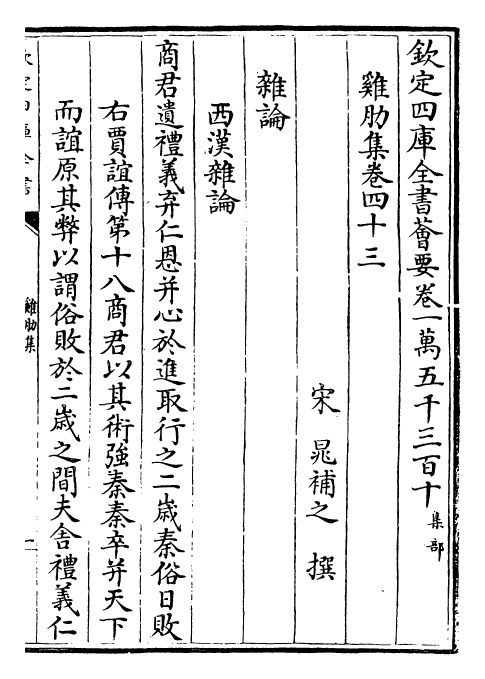 欽定四庫全書薈要卷一萬五千三百十 集部
雞肋集卷四十三
宋 晁補之 撰
雜論
西漢雜論
商君遺禮義弃仁恩并心於進取行之二歳秦俗日敗
右賈誼傳第十八商君以其術強秦秦卒并天下
而誼原其弊以謂俗敗於二歳之間夫舍禮義仁
雞肋集